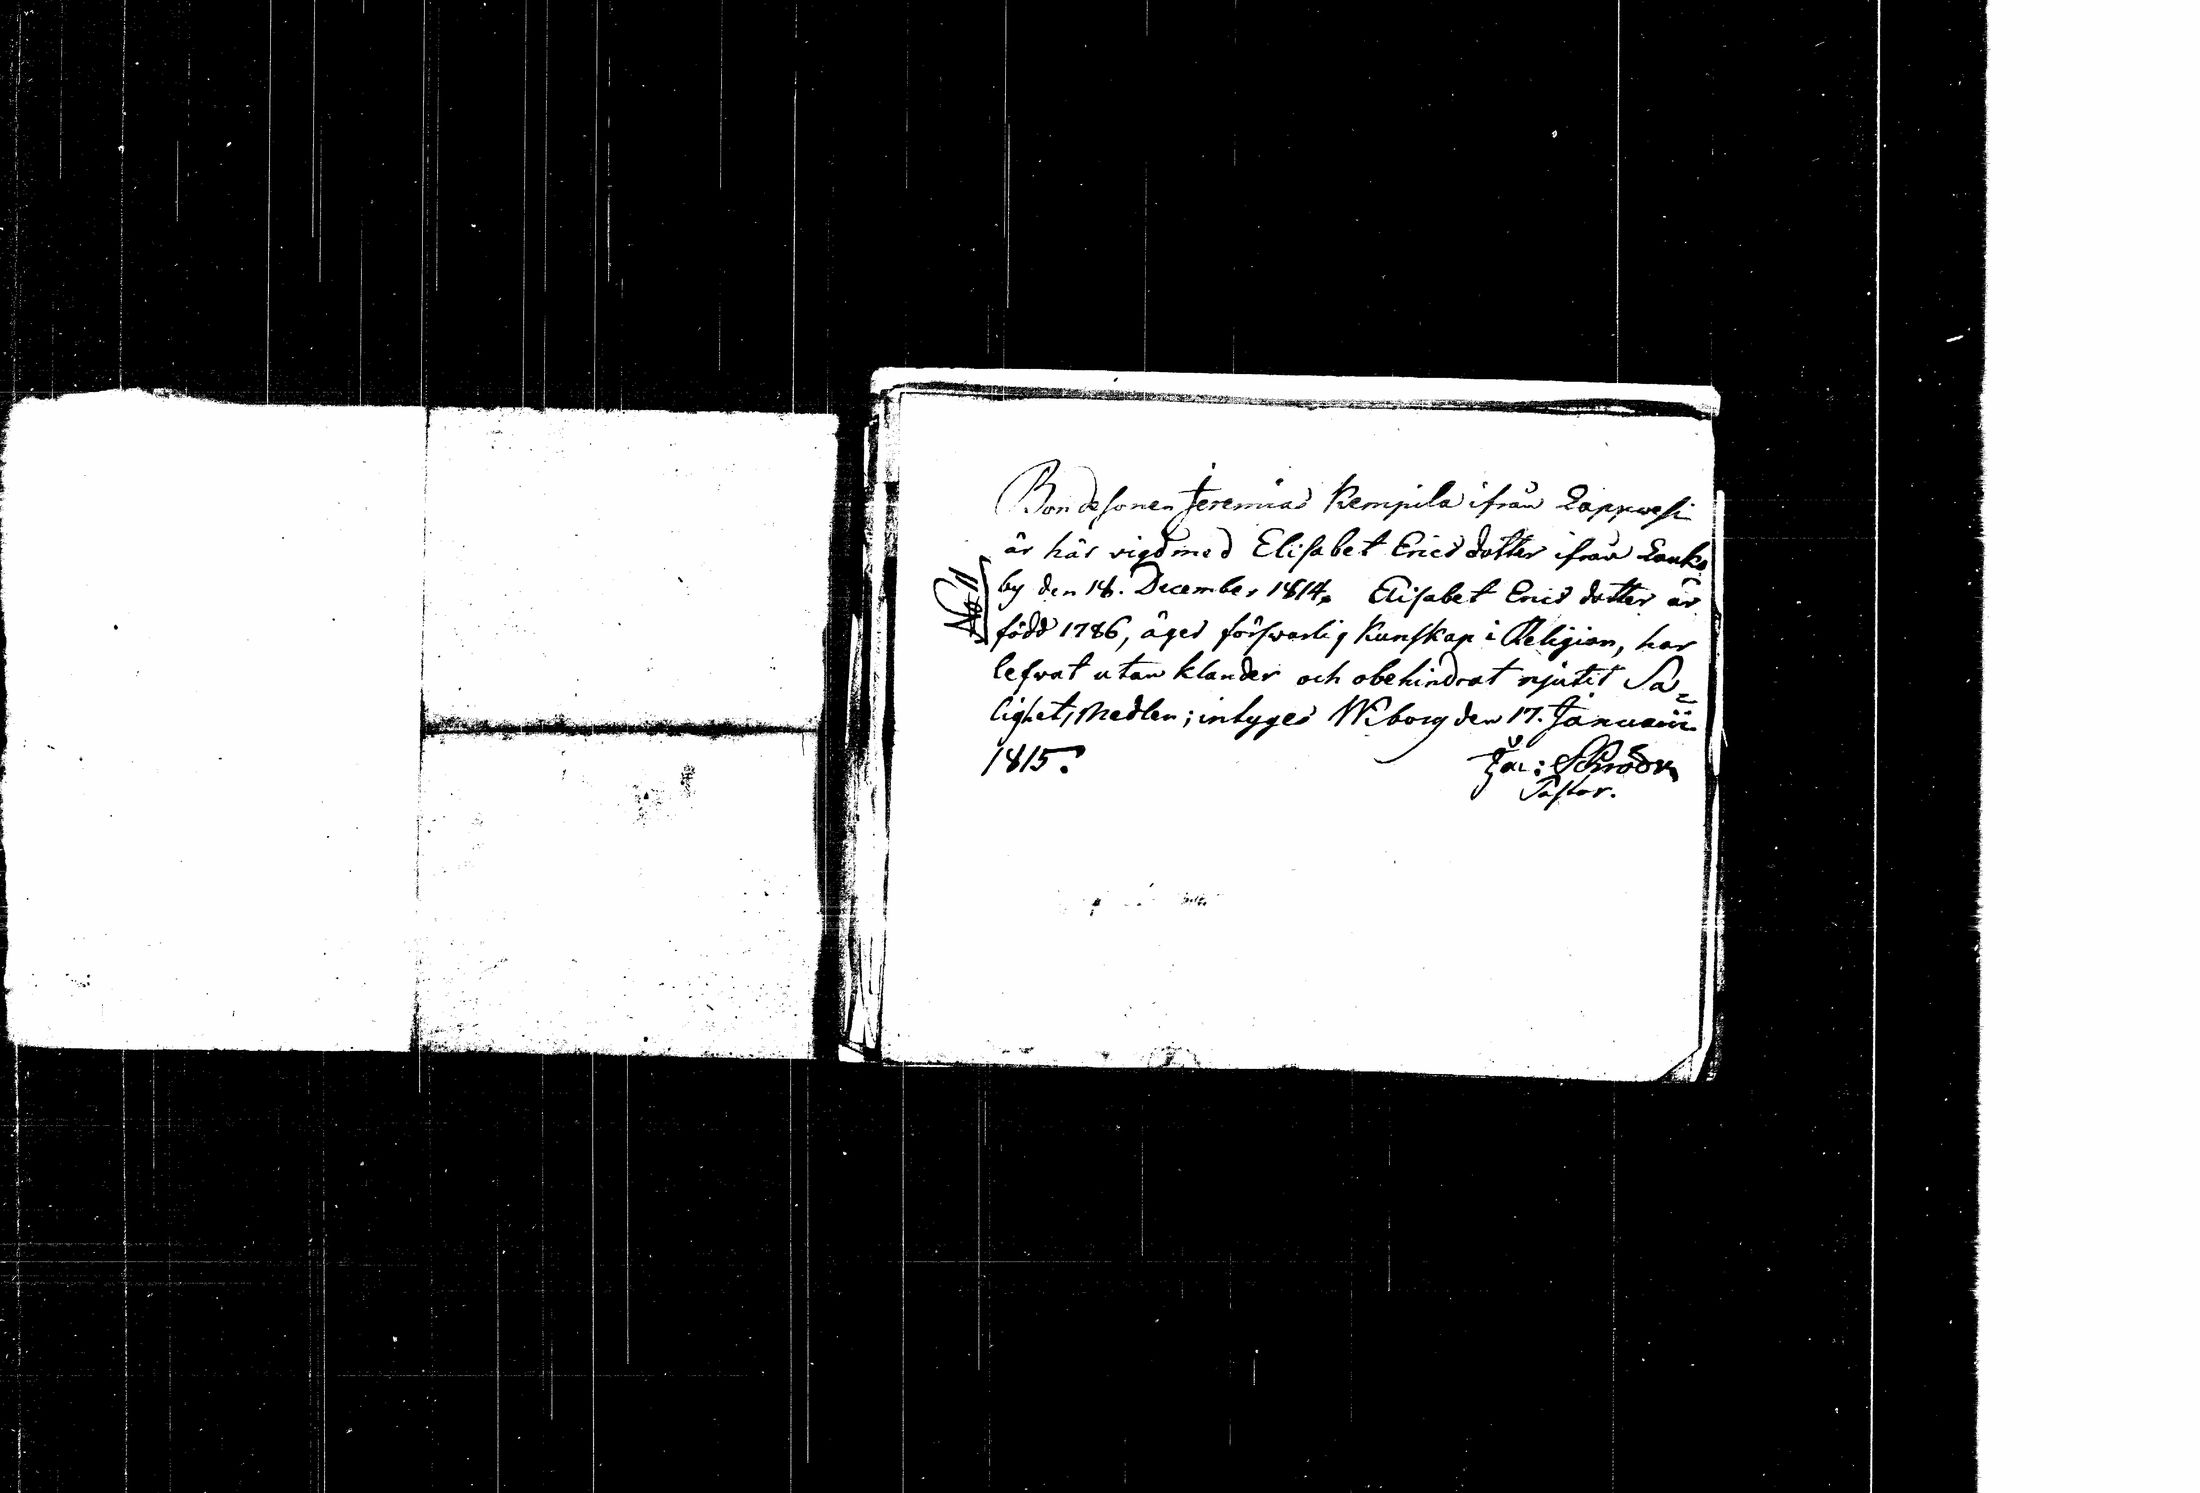 No 11
Bondesonen Jeremias Kempila ifrån Lappwesi
är här vigd med Elisabet Ericsdotter ifrån Lauko
by den 18. December 1814. Elisabet Erics dotter är
född 1786, äger förswarlig Kunskap i Religion, har
lefwat utan klander och obehindrat njutit Sa=
lighets Medlen; intyges Wiborg den 17. Januarii
1815. Jac: Schröder
Pastor.